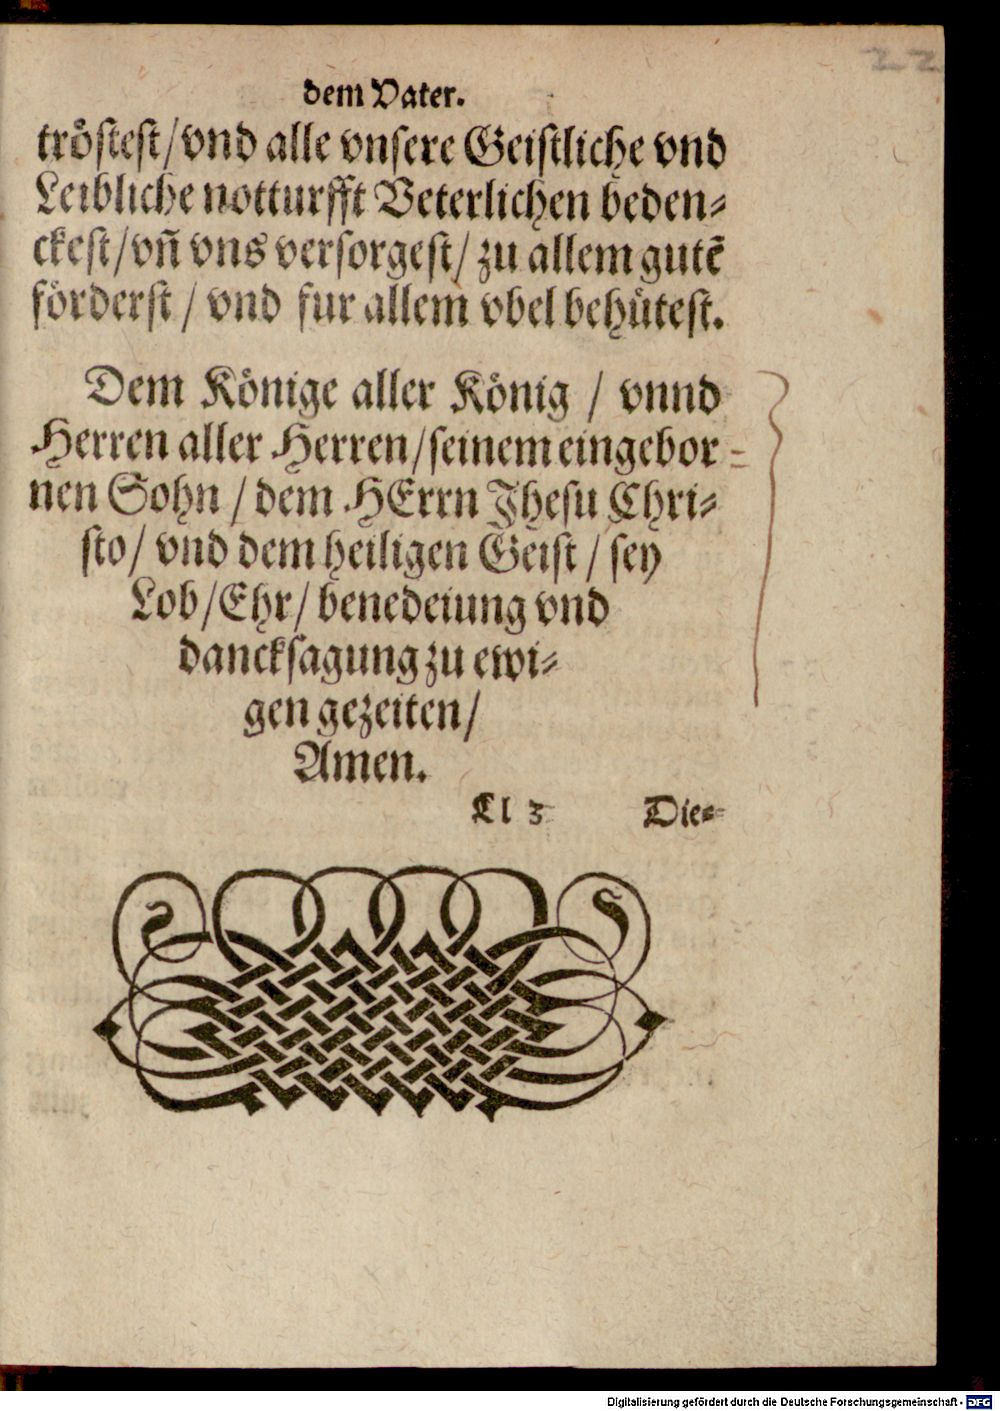 22
dem Vater.
tröstest/vnd alle vnsere Geistliche vnd
Leibliche notturfft Veterlichen beden-
ckest/vñ vns versorgest/ zu allem gutē
förderst / vnd fur allem vbel behütest.
Dem Könige aller König / vnnd
Herren aller Herren/seinem eingebor-
nen Sohn / dem HErrn Jhesu Chri-
sto/ vnd dem heiligen Geist / sey
Lob/Ehr/ benedeiung vnd
dancksagung zu ewi-
gen gezeiten/
Amen.
Cl 3 Die-
Digitalisierung gefördert durch die Deutsche Forschungsgemeinschaft - DFG